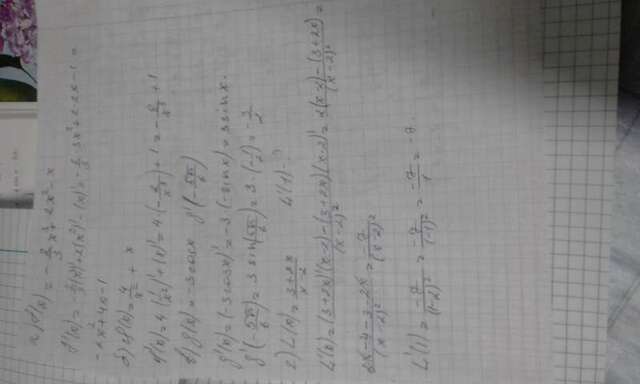 а) f(x) = -2/3 x³ + 2x² - x
f'(x) = -2/3 (x³)' + 2(x²)' - (x)' = -2/3 · 3x² + 2·2x - 1 =
-2x² + 4x - 1
б) φ(x) = 4/x² + x
φ'(x) = 4·(1/x²)' + (x)' = 4·(-2/x³) + 1 = -8/x³ + 1
в) g(x) = -3cosx g'(-5π/6)
g'(x) = (-3cosx)' = -3·(-sinx) = 3sinx.
g'(-5π/6) = 3 sin(5π/6) = 3·(-1/2) = -3/2
г) h(x) = 3+2x/x-2 h'(1) - ?
h'(x) = (3+2x)'(x-2) - (3+2x)(x-2)'/(x-2)² = 2(x-2) - (3+2x)/(x-2)² =
2x-4-3-2x/(x-2)² = -7/(x-2)²
h'(1) = -7/(1-2)² = -7/(-1)² = -7/1 = -7.